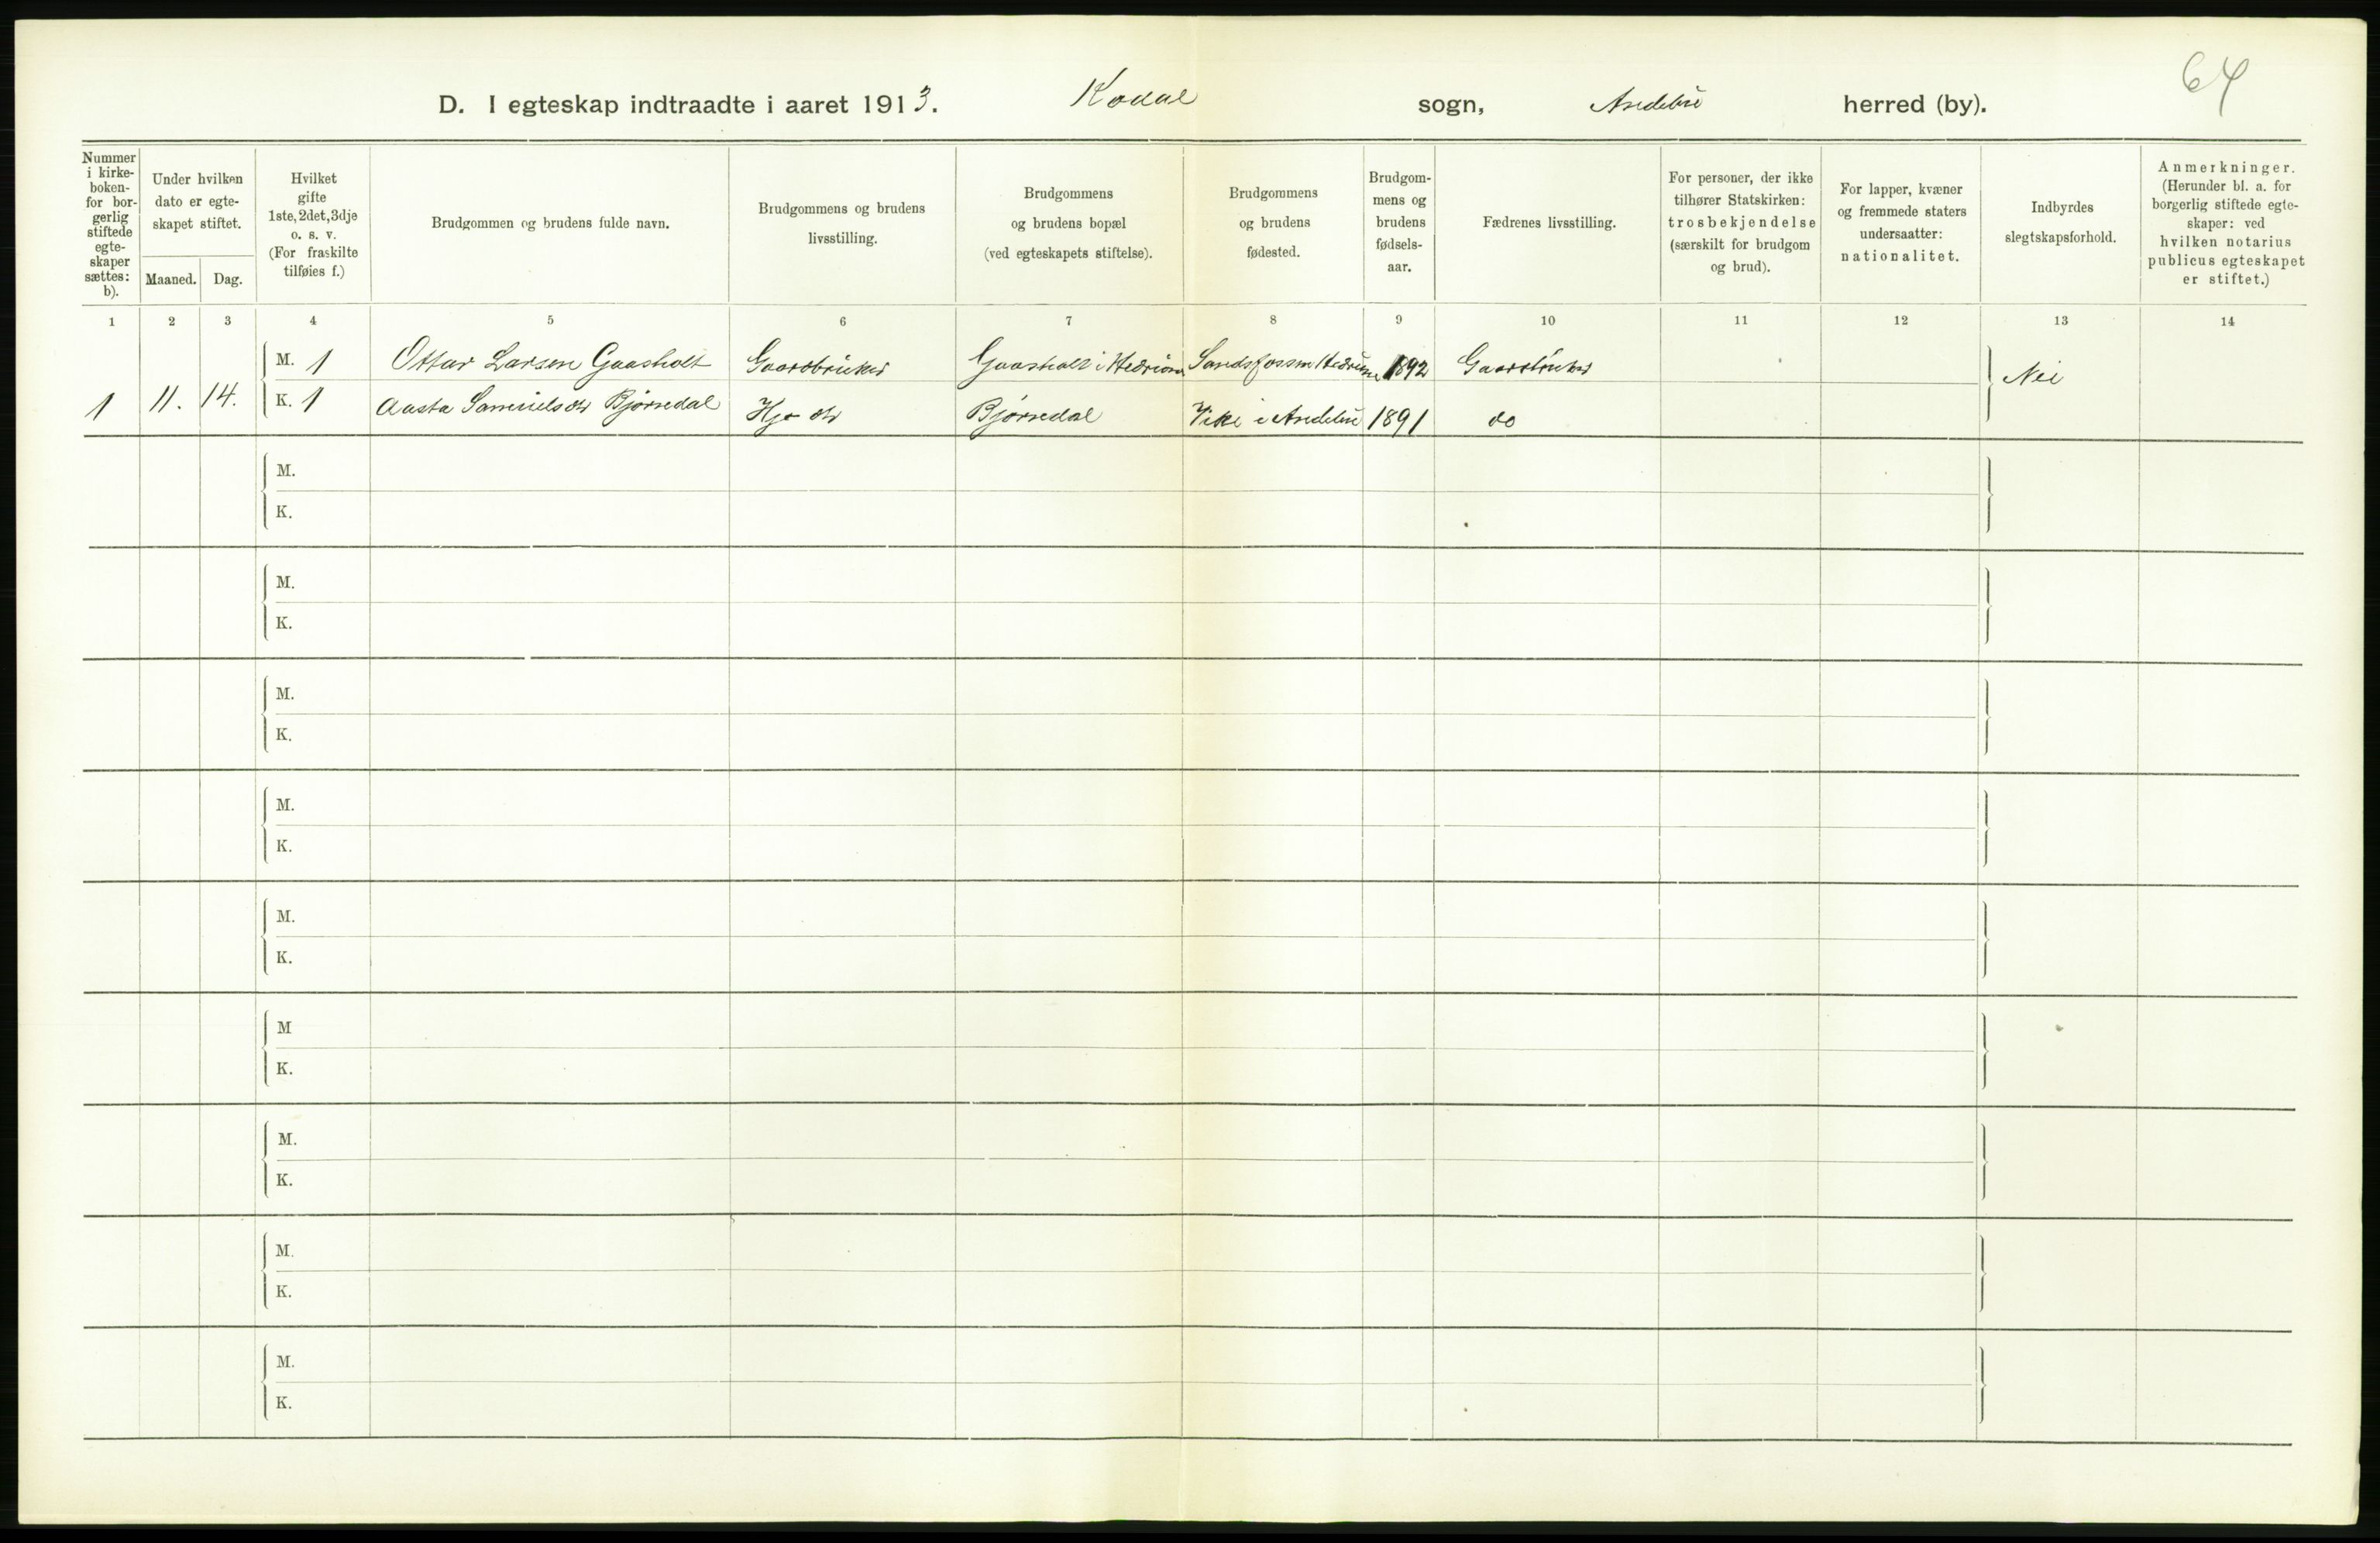 64
D. I egteskap indtraadte i aaret 1913. Kodal sogn, Andebu herred (by).
Nummer i kirke-boken- for bor-gerlig stiftede egte-skaper sættes: b).
Under hvilken dato er egte-skapet stiftet.
Maaned. Dag.
Hvilket gifte 1ste, 2det, 3dje o. s. v. (For fraskilte tilføies f.)
Brudgommen og brudens fulde navn.
Brudgommens og brudens livsstilling.
Brudgommens og brudens bopæl (ved egteskapets stiftelse).
Brudgommens og brudens fødested.
Brudgom-mens og brudens fødsels-aar.
Fædrenes livsstilling.
For personer, der ikke tilhører Statskirken: trosbekjendelse (særskilt for brudgom og brud).
For lapper, kvæner og fremmede staters undersaatter: nationalitet.
Indbyrdes slegtskapsforhold.
Anmerkninger. (Herunder bl. a. for borgerlig stiftede egte-skaper: ved hvilken notarius publicus egteskapet er stiftet.)
1 2 3 4 5 6 7 8 9 10 11 12 13 14
M. 1 Ottar Larsen Gaasholt Gaardbruker Gaasholt i Hedrum Sandsfossen Hedrum 1892 Gaardbruker Nei
1 11. 14. K. 1 Aasta Samuelsdtr Bjørndal Hj. dtr Bjørndal i Andebu 1891 do
M.
K.
M.
K.
M.
K.
M.
K.
M.
K.
M
K.
M.
K.
M.
K.
M.
K.